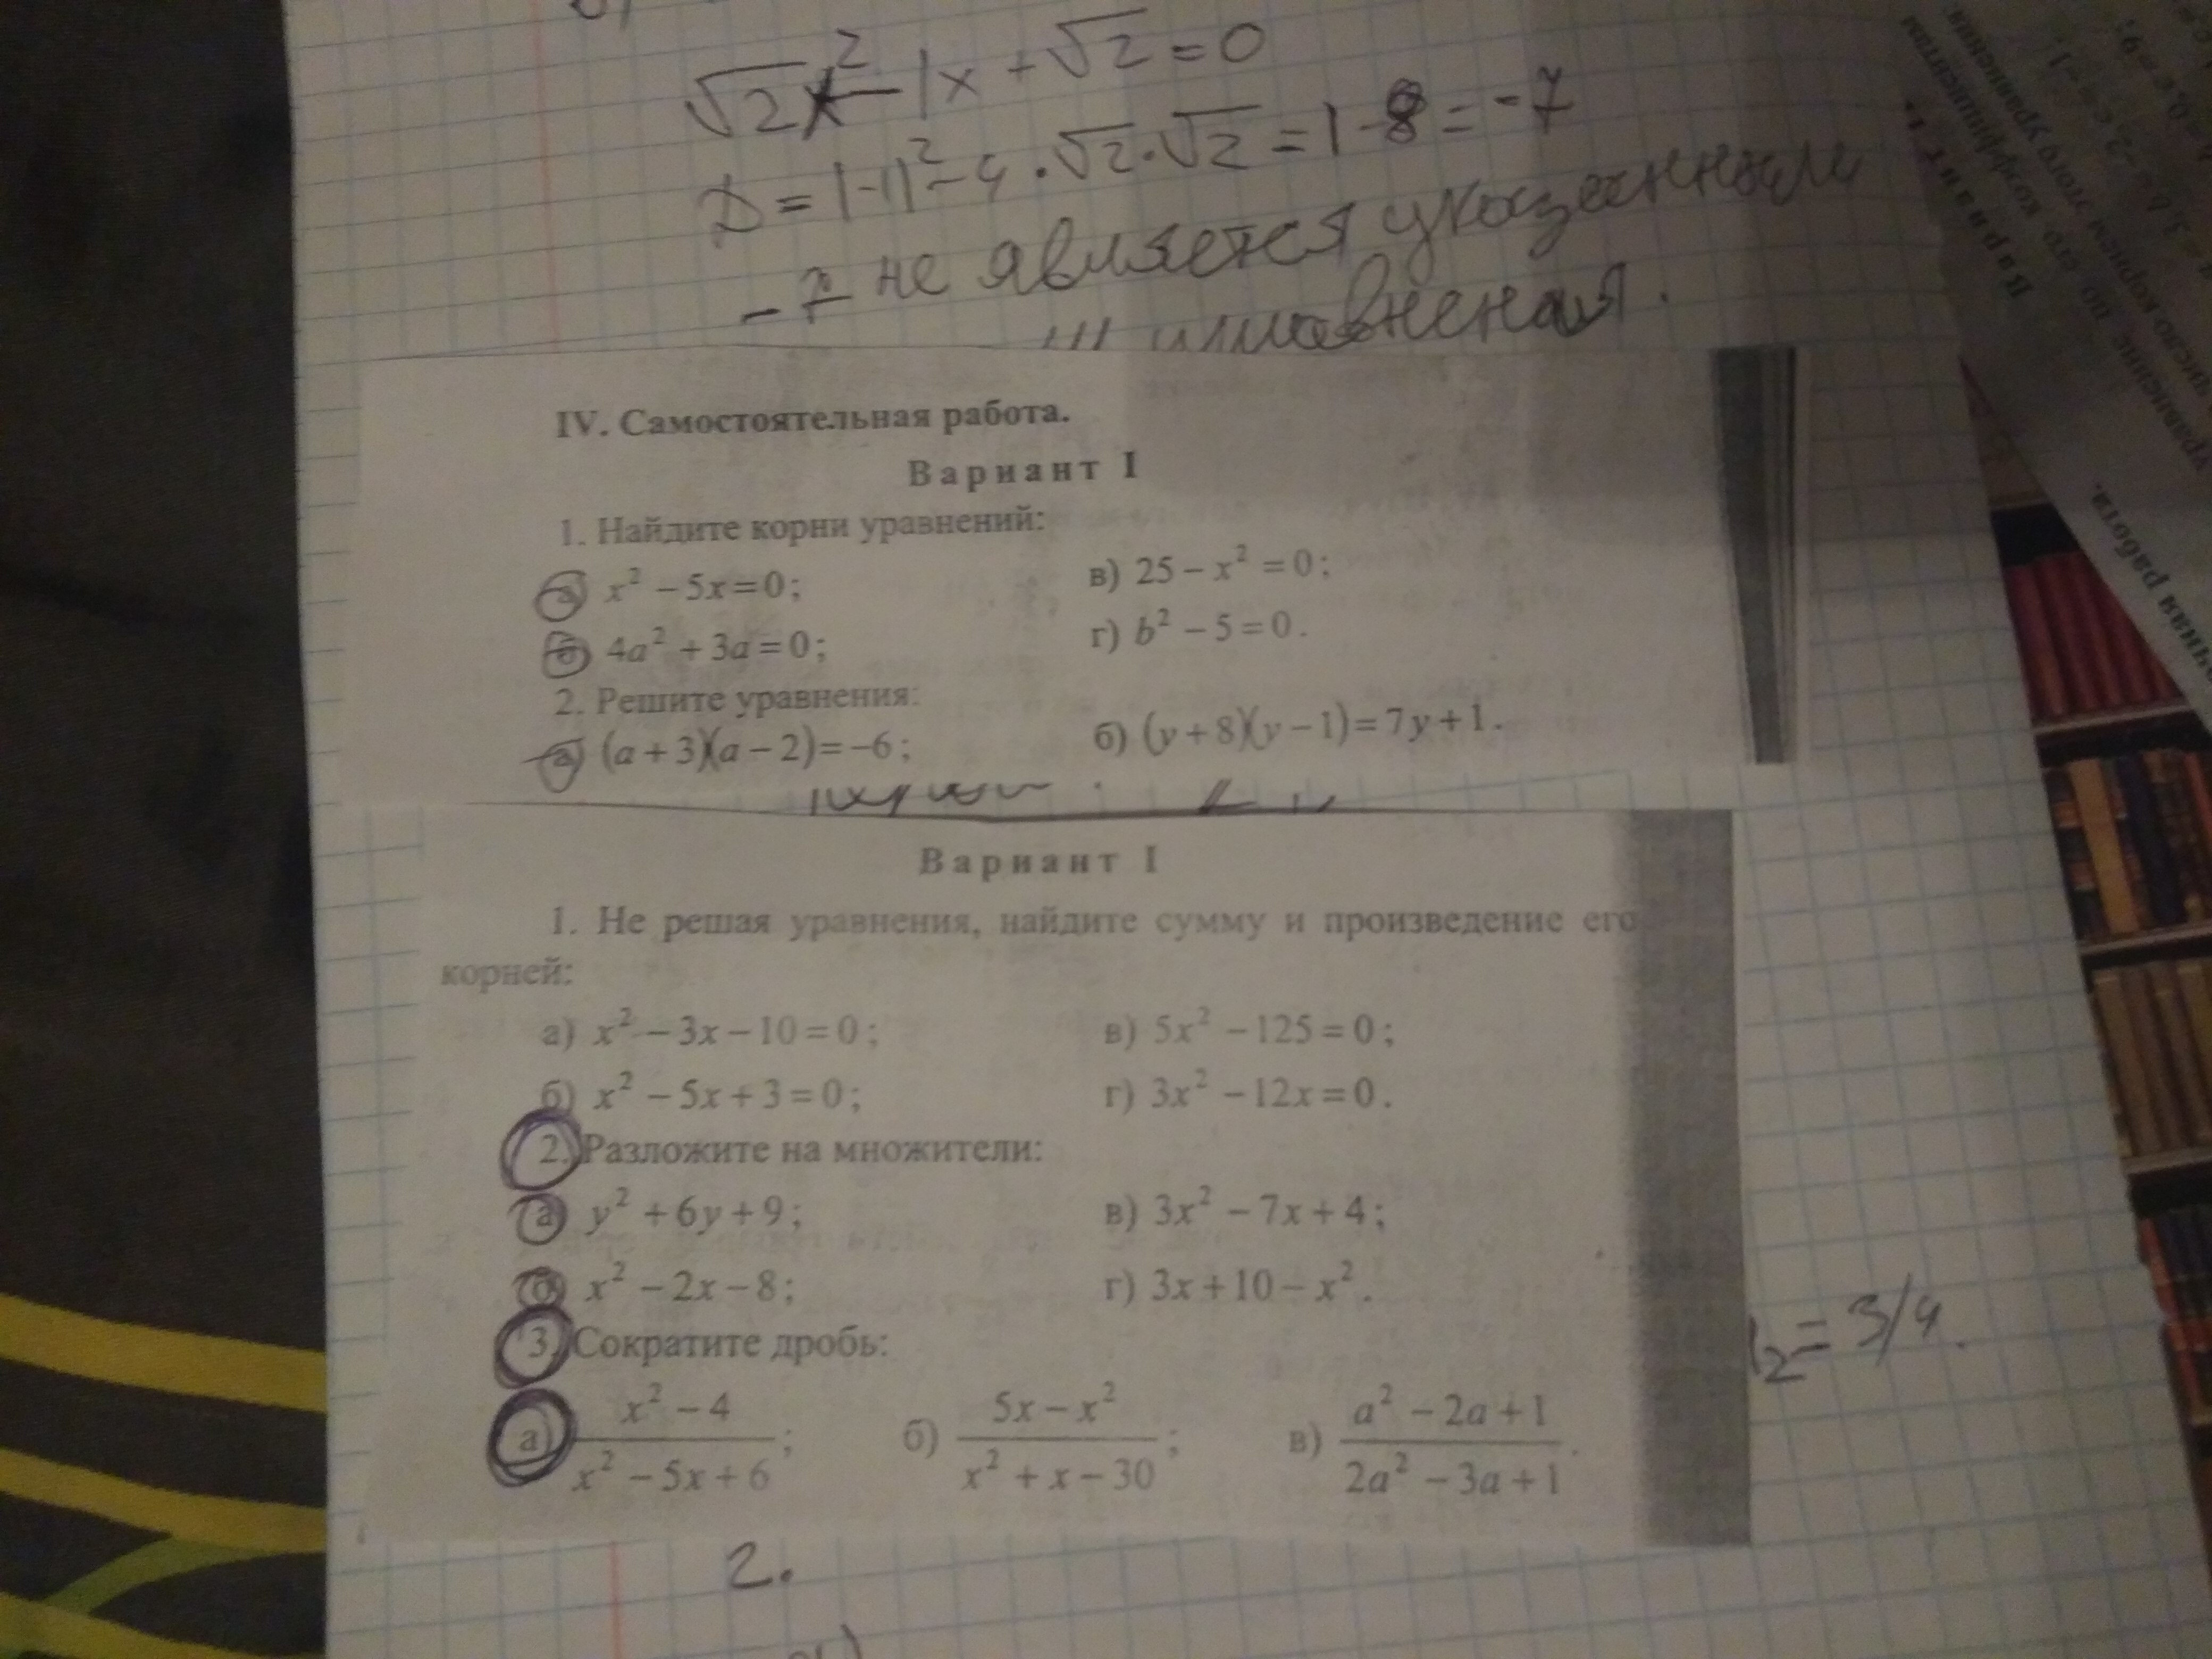 √2x² - 1x + √2 = 0
D = (-1)² - 4 · √2 · √2 = 1 - 8 = -7
-7 не является указанным
IV. Самостоятельная работа.
Вариант I
1. Найдите корни уравнений:
а) x² − 5x = 0; в) 25 − x² = 0;
б) 4a² + 3a = 0; г) b² − 5 = 0.
2. Решите уравнения:
а) (a + 3)(a − 2) = −6; б) (y + 8)(y − 1) = 7y + 1.
Вариант I
1. Не решая уравнения, найдите сумму и произведение его
корней:
а) x² − 3x − 10 = 0; в) 5x² − 125 = 0;
б) x² − 5x + 3 = 0; г) 3x² − 12x = 0.
2. Разложите на множители:
а) y² + 6y + 9; в) 3x² − 7x + 4;
б) x² − 2x − 8; г) 3x + 10 − x².
3. Сократите дробь:
а) (x² − 4)/(x² − 5x + 6); б) (5x − x²)/(x² + x − 30); в) (a² − 2a + 1)/(2a² − 3a + 1).
2 = 3/4.
2.
Вариант I.